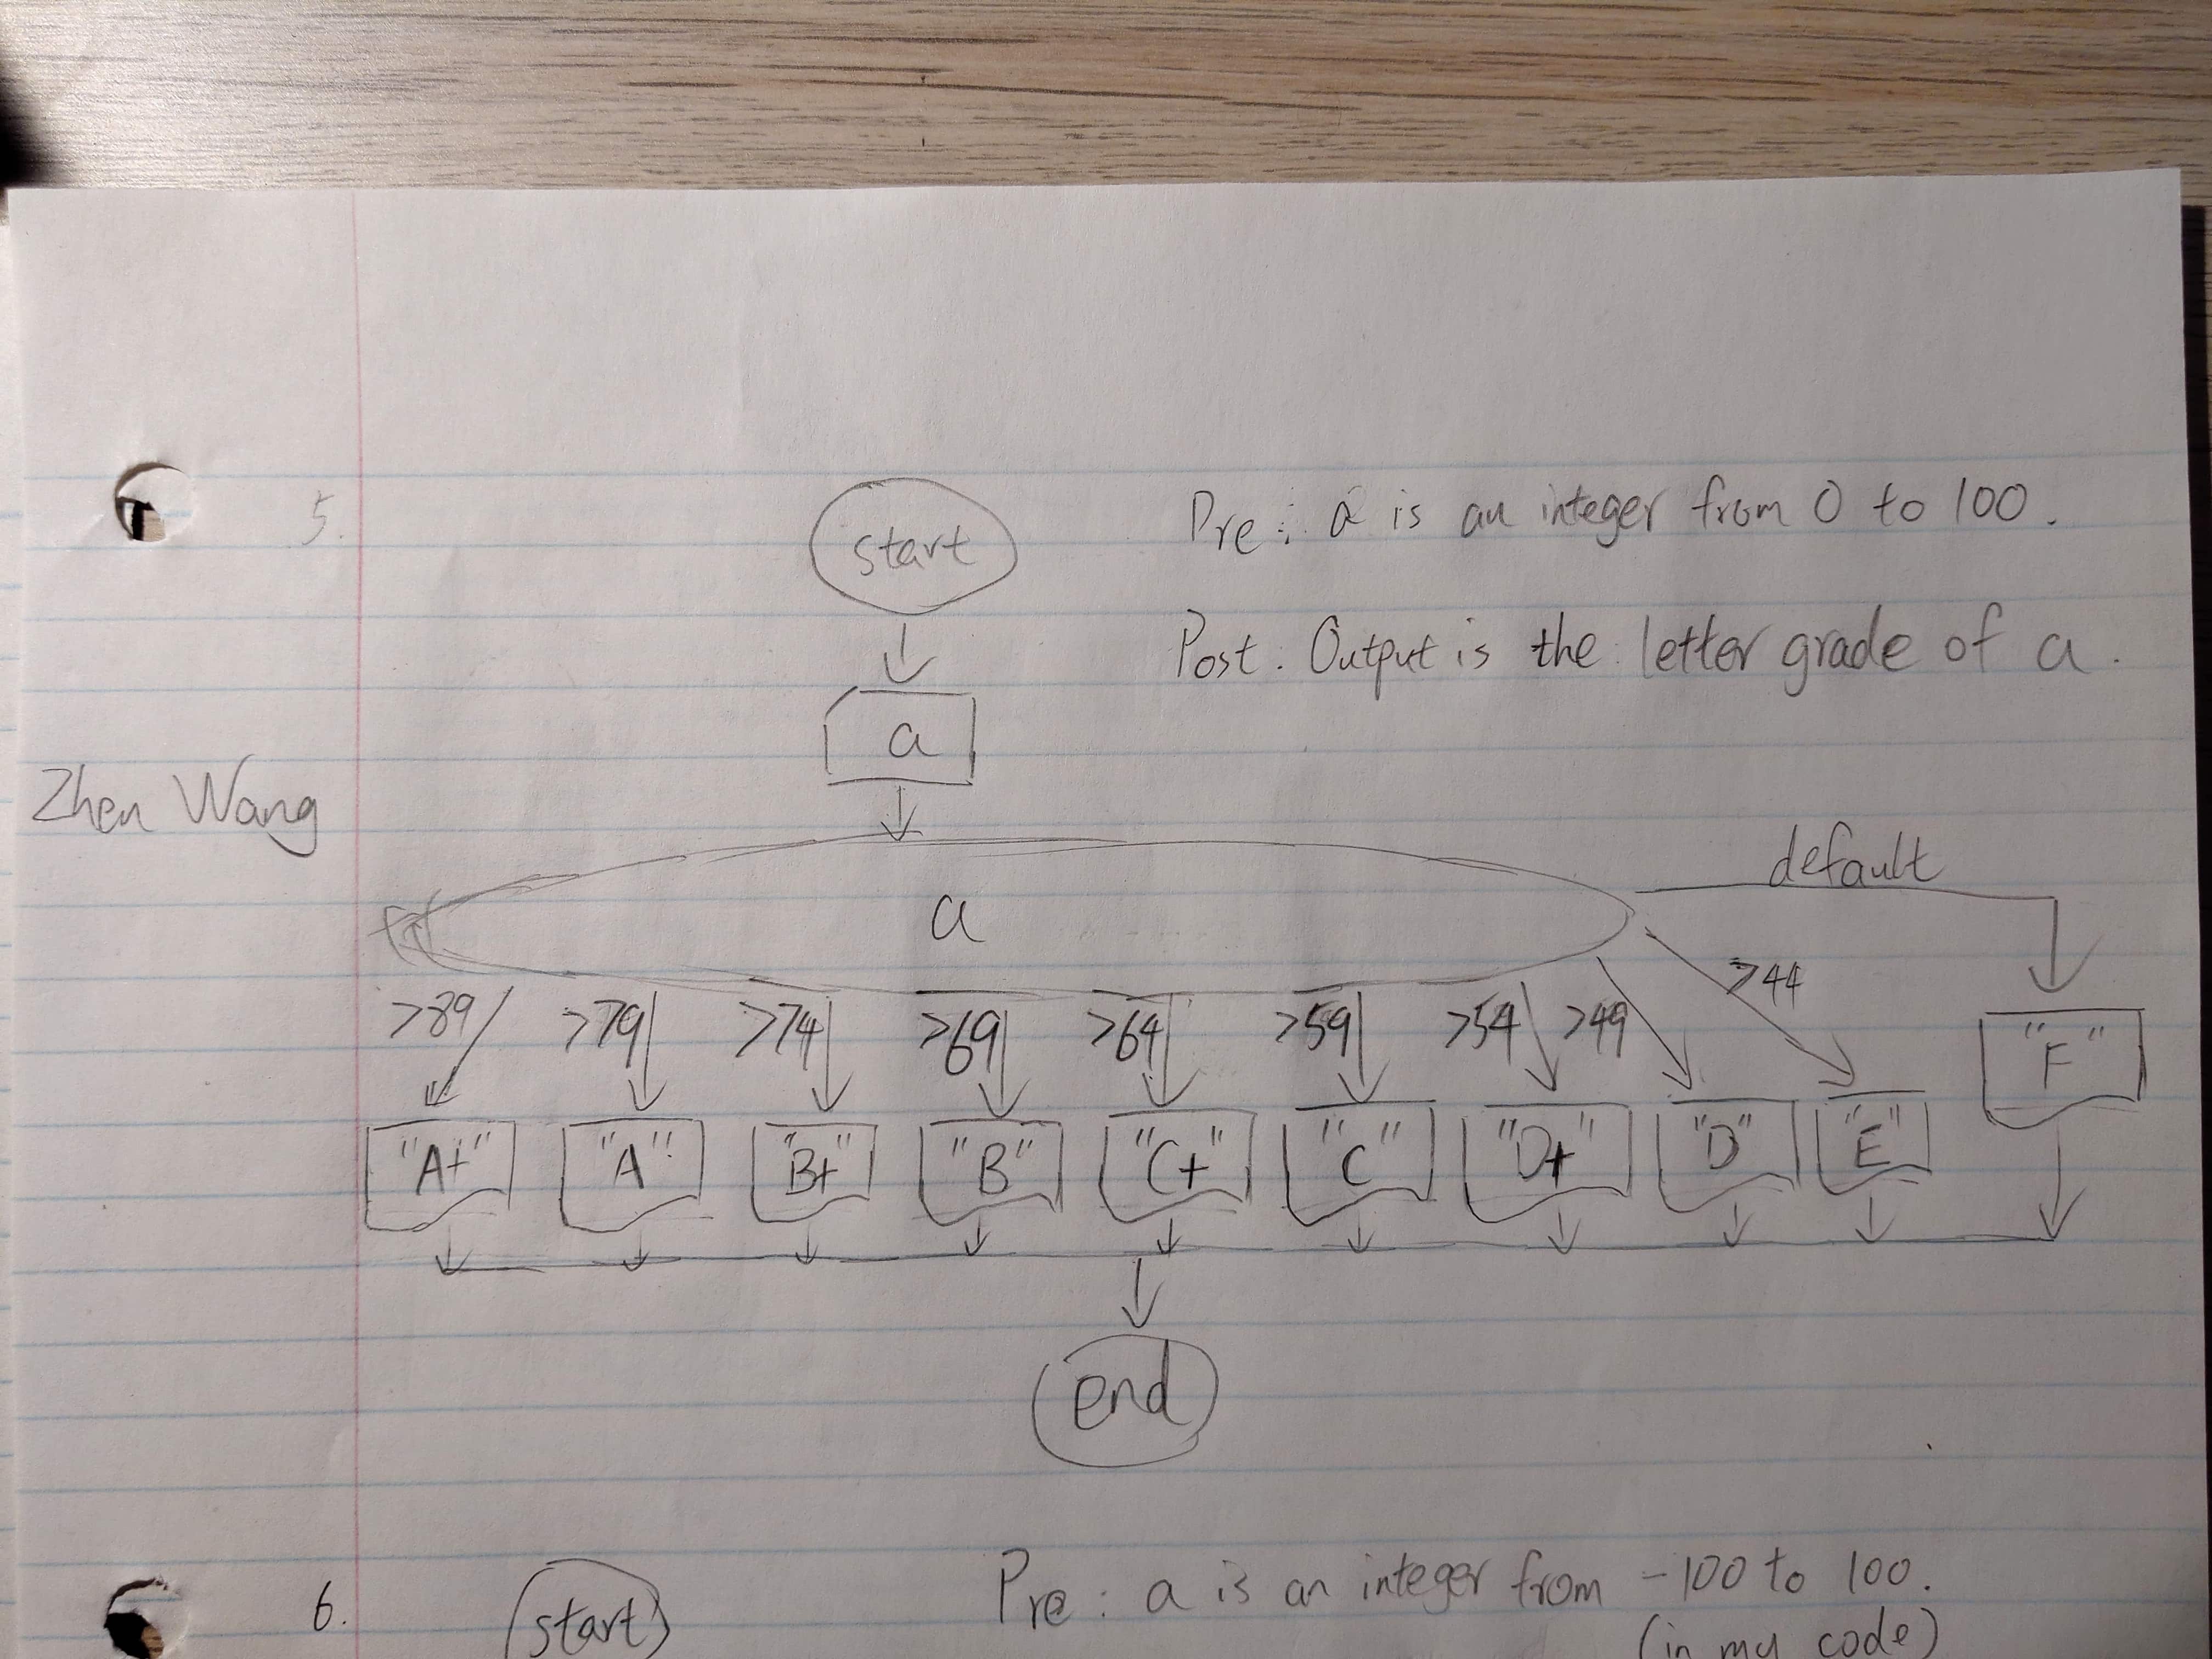 5.
start
Pre: a is an integer from 0 to 100.
Post. Output is the letter grade of a.
a
Zhen Wang
default
a
>89 >79 >74 >69 >64 >59 >54 >49 >44
"F"
"A+" "A" "B+" "B" "C+" "C" "D+" "D" "E"
end
6.
start
Pre: a is an integer from -100 to 100.
(in my code)